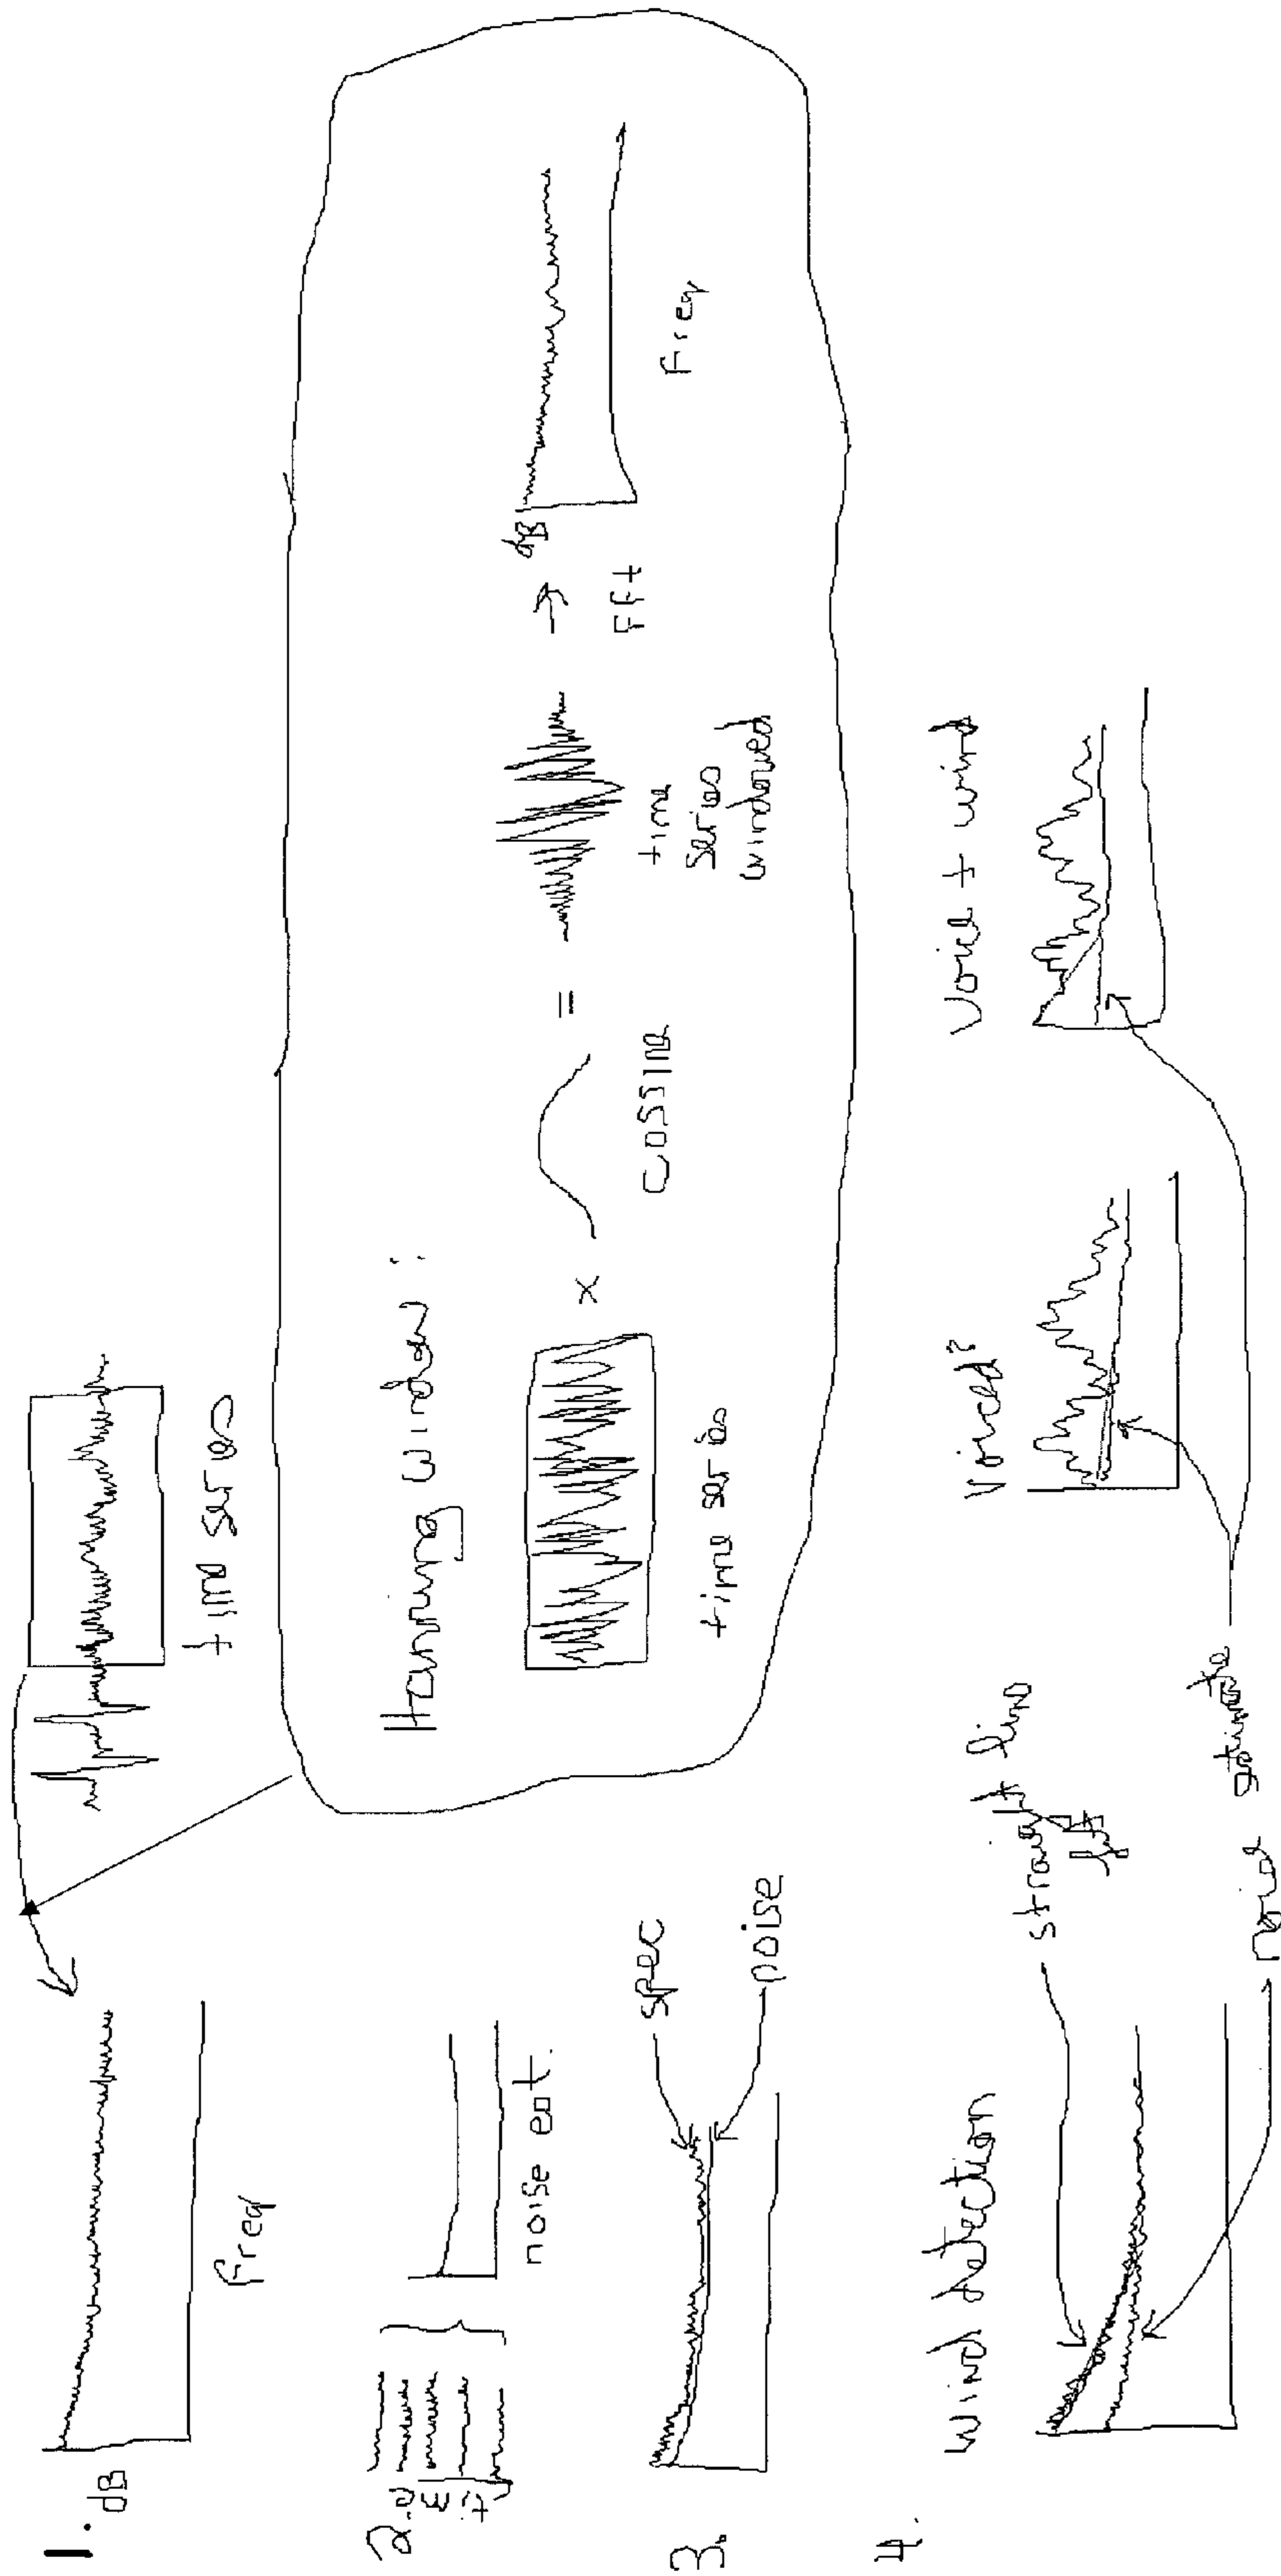 1.
dB
Freq
time series
Hanning Window:
time series
x
cossine
=
time
series
windowed
→
FFt
dB
Freq
2.
time
noise est.
3.
spec
noise
4.
Wind detection
straight line
fit
noise estimate
Voiced?
Voice + wind